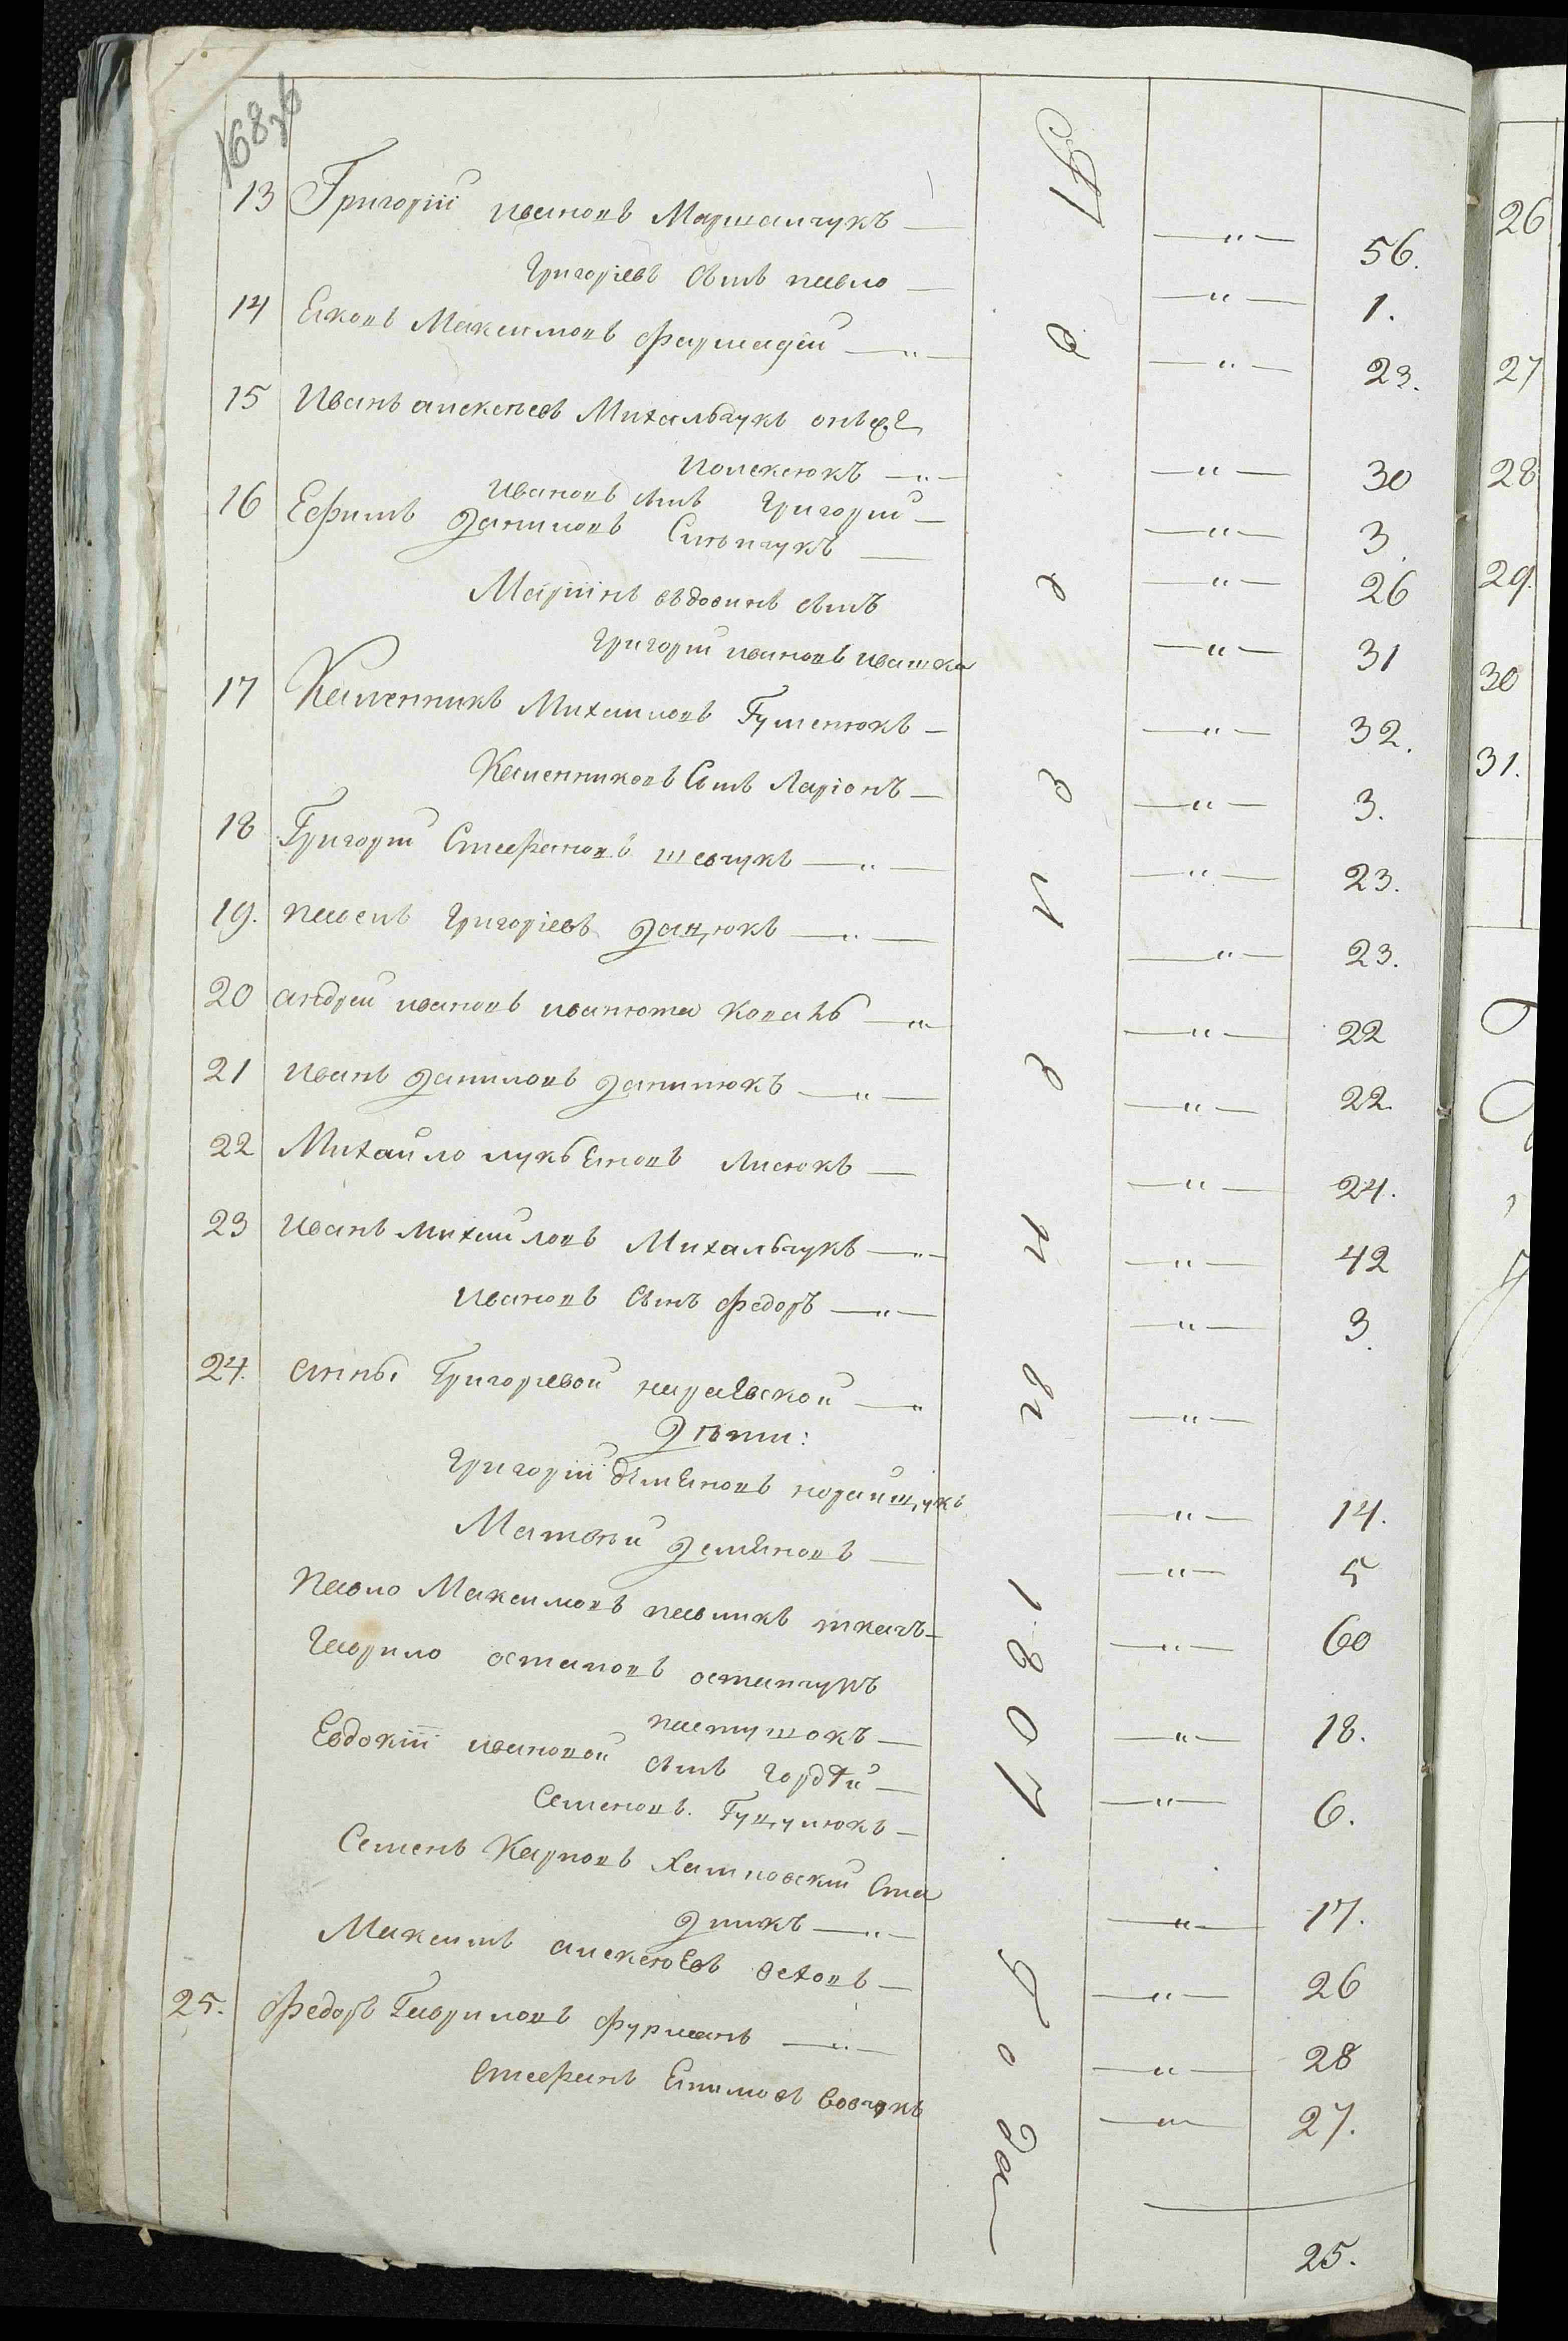 168 об
13 Григорій Ивановъ Маршалчукъ — — " — 56.
Григоріевъ сынъ павло — — " — 1.
14 Яковъ Максимовъ Фармагей — " — — " — 23.
15 Иванъ алексеевъ Михальчукъ онъ же
Иолексюкъ — " — — " — 30
Ивановъ сынъ Григорій — — " — 3.
16 Ефимъ Даниловъ — — " — 26
Маріінъ вдовинъ сынъ
Григорій ивановъ ивашка — " — 31
17 Калепникъ Михайловъ Гуменюкъ — — " — 32.
Калепниковъ Сынъ Ларіонъ — — " — 3.
18 Григорій Стефановъ шевчукъ — " — — " — 23.
19. павелъ Григоріевъ Дацюкъ — " — — " — 23.
20 андрей ивановъ иванюта коваль — " — — " — 22
21 Иванъ Даниловъ Данилюкъ — " — — " — 22.
22 Михайло лукьяновъ Лисюкъ — — " — 24.
23 Иванъ михайловъ Михальчукъ — " — — " — 42
Ивановъ Сынъ Федоръ — " — — " — 3.
24. анны Григорьевой нараевской — " — " —
Дѣти:
Григорій демяновъ нораищукъ — " — 14.
Матвѣй Демяновъ — — " — 5
Павло Максимовъ павликъ ткачъ — — " — 60
Гаврило остаповъ остапчукъ
пастушокъ — — " — 18.
Евдокіи ивановой сынъ Гордѣй —
Семеновъ Гуцулюкъ — — " — 6.
Семенъ Карповъ Хатновскій Ста
дникъ — " — — " — 17.
Максимъ алексеевъ — — " — 26
25. Федоръ Гавриловъ Фурманъ — " — — " — 28
Стефанъ Вовчукъ — " — 27.
25.
1807
года
26
27
28
29.
30
31.